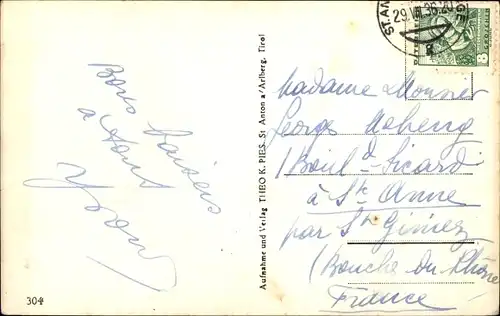 Bons baisers
à tous
Yvonne
304
Aufnahme und Verlag THEO K. PIES, St Anton a/Arlberg, Tirol
ST. AN
29.VII.36.20
8
Madame Monsieur
Georges
1 Boul d Sicard
à Ste Anne
par St
(Bouche du Rhône
France